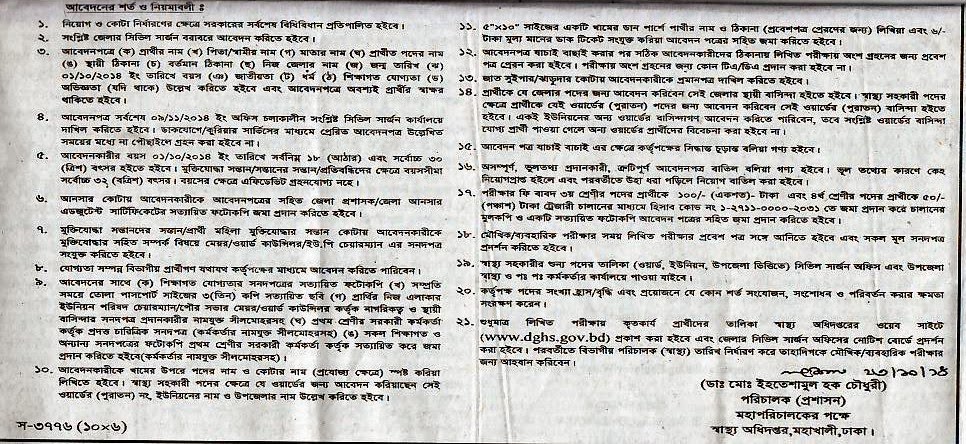 আবেদনের শর্ত ও নিয়মাবলী ঃ
১. নিয়োগ ও কোটা নির্ধারণের ক্ষেত্রে সরকারের সর্বশেষ বিধিবিধান প্রতিপালিত হইবে।
২. সংশ্লিষ্ট জেলার সিভিল সার্জন বরাবরে আবেদন করিতে হইবে।
৩. আবেদনপত্রে (ক) প্রার্থীর নাম (খ) পিতা/স্বামীর নাম (গ) মাতার নাম (ঘ) প্রার্থীত পদের নাম
(ঙ) স্থায়ী ঠিকানা (চ) বর্তমান ঠিকানা (ছ) নিজ জেলার নাম (জ) জন্ম তারিখ (ঝ)
০১/১০/২০১৪ ইং তারিখে বয়স (ঞ) জাতীয়তা (ট) ধর্ম (ঠ) শিক্ষাগত যোগ্যতা (ড)
অভিজ্ঞতা (যদি থাকে) উল্লেখ করিতে হইবে এবং আবেদনপত্রে অবশ্যই প্রার্থীর স্বাক্ষর
থাকিতে হইবে।
৪. আবেদনপত্র সর্বশেষ ০৯/১১/২০১৪ ইং অফিস চলাকালীন সংশ্লিষ্ট সিভিল সার্জন কার্যালয়ে
দাখিল করিতে হইবে। ডাকযোগে/কুরিয়ার সার্ভিসের মাধ্যমে প্রেরিত আবেদনপত্র উল্লেখিত
সময়ের মধ্যে না পৌছাইলে গ্রহন করা হইবে না।
৫. আবেদনকারীর বয়স ০১/১০/২০১৪ ইং তারিখে সর্বনিম্ন ১৮ (আঠার) এবং সর্বোচ্চ ৩০
(ত্রিশ) বৎসর হইতে হইবে। মুক্তিযোদ্ধা সন্তান/সন্তানের সন্তান/প্রতিবন্ধিদের ক্ষেত্রে বয়সসীমা
সর্বোচ্চ ৩২ (বত্রিশ) বৎসর। বয়সের ক্ষেত্রে এফিডেভিট গ্রহনযোগ্য নহে।
৬. আনসার কোটায় আবেদনকারীকে আবেদনপত্রের সহিত জেলা প্রশাসক/জেলা আনসার
এডজুটেন্ট সার্টিফিকেটের সত্যায়িত ফটোকপি জমা প্রদান করিতে হইবে।
৭. মুক্তিযোদ্ধা সন্তানদের সন্তান/প্রার্থী মহিলা মুক্তিযোদ্ধার সন্তান কোটায় আবেদনকারীকে
মুক্তিযোদ্ধার সহিত সম্পর্ক বিষয়ে মেয়র/ওয়ার্ড কাউন্সিলর/ইউ,পি চেয়ারম্যান এর সনদপত্র
সংযুক্ত করিতে হইবে।
৮. যোগ্যতা সম্পন্ন বিভাগীয় প্রার্থীগণ যথাযথ কর্তৃপক্ষের মাধ্যমে আবেদন করিতে পারিবেন।
৯. আবেদনের সাথে (ক) শিক্ষাগত যোগ্যতার সনদপত্রের সত্যায়িত ফটোকপি (খ) সম্প্রতি
সময়ে তোলা পাসপোর্ট সাইজের ৩(তিন) কপি সত্যায়িত ছবি (গ) প্রার্থির নিজ এলাকার
ইউনিয়ন পরিষদ চেয়ারম্যান/পৌর সভার মেয়র/ওয়ার্ড কাউন্সিলর কর্তৃক নাগরিকত্ব ও স্থায়ী
বাসিন্দার সনদপত্র প্রদানকারীর নামযুক্ত সীলমোহরসহ) (ঘ) প্রথম শ্রেণীর সরকারী কর্মকর্তা
কর্তৃক প্রদত্ত চারিত্রিক সনদপত্র (কর্মকর্তার নামযুক্ত সীলমোহরসহ) (ঙ) সকল শিক্ষাগত ও
অন্যান্য সনদপত্রের ফটোকপি প্রথম শ্রেণীর সরকারী কর্মকর্তা কর্তৃক সত্যায়িত করে জমা
প্রদান করিতে হইবে(কর্মকর্তার নামযুক্ত সীলমোহরসহ)।
১০. আবেদনকারীকে খামের উপরে পদের নাম ও কোটার নাম (প্রযোজ্য ক্ষেত্রে) স্পষ্ট করিয়া
লিখিতে হইবে। স্বাস্থ্য সহকারী পদের ক্ষেত্রে যে ওয়ার্ডের জন্য আবেদন করিয়াছেন সেই
ওয়ার্ডের (পুরাতন) নং, ইউনিয়নের নাম ও উপজেলার নাম উল্লেখ করিতে হইবে।
স-৩৭৭৬ (১০×৬)
১১. ৫"×১০" সাইজের একটি খামের ডান পার্শে পার্থীর নাম ও ঠিকানা (প্রবেশপত্র প্রেরণের জন্য) লিখিয়া এবং ৬/-
টাকা মূল্য মানের ডাক টিকেট সংযুক্ত করিয়া আবেদন পত্রের সহিত জমা করিতে হইবে।
১২. আবেদনপত্র যাচাই বাছাই করার পর সঠিক আবেদনকারীদের ঠিকানায় লিখিত পরীক্ষায় অংশ গ্রহনের জন্য প্রবেশ
পত্র প্রেরন করা হইবে। পরীক্ষায় অংশ গ্রহনের জন্য কোন টিএ/ডিএ প্রদান করা হইবে না।
১৩. জাত সুইপার/ঝাড়ুদার কোটায় আবেদনকারীকে প্রমানপত্র দাখিল করিতে হইবে।
১৪. প্রার্থীকে যে জেলার পদের জন্য আবেদন করিবেন সেই জেলার স্থায়ী বাসিন্দা হইতে হইবে। স্বাস্থ্য সহকারী পদের
ক্ষেত্রে প্রার্থীকে যেই ওয়ার্ডের (পুরাতন) পদের জন্য আবেদন করিবেন সেই ওয়ার্ডের (পুরাতন) বাসিন্দা হইতে
হইবে। একই ইউনিয়নের অন্য ওয়ার্ডের বাসিন্দাগণ আবেদন করিতে পারিবেন, তবে সংশ্লিষ্ট ওয়ার্ডের বাসিন্দা
যোগ্য প্রার্থী পাওয়া গেলে অন্য ওয়ার্ডের প্রার্থীদের বিবেচনা করা হইবে না।
১৫. আবেদন পত্র যাচাই বাচাই এর ক্ষেত্রে কর্তৃপক্ষের সিদ্ধান্ত চূড়ান্ত বলিয়া গণ্য হইবে।
১৬. অসম্পূর্ণ, ভুলতথ্য প্রদানকারী, ক্রটিপূর্ণ আবেদনপত্র বাতিল বলিয়া গণ্য হইবে। ভুল তথ্যের কারণে কেহ
নিয়োগপ্রাপ্ত হইলে এবং পরবর্তীতে উহা ধরা পড়িলে নিয়োগ বাতিল করা হইবে।
১৭. পরীক্ষার ফি বাবদ ৩য় শ্রেণীর পদের প্রার্থীকে ১০০/- (একশত)- টাকা এবং ৪র্থ শ্রেণীর পদের প্রার্থীকে ৫০/-
(পঞ্চাশ) টাকা ট্রেজারী চালানের মাধ্যমে হিসাব কোড নং ১-২৭১১-০০০০-২০৩১ তে জমা প্রদান করে চালানের
মূলকপি ও একটি সত্যায়িত ফটোকপি আবেদন পত্রের সহিত জমা প্রদান করিতে হইবে।
১৮. মৌখিক/ব্যবহারিক পরীক্ষার সময় লিখিত পরীক্ষার প্রবেশ পত্র সঙ্গে আনিতে হইবে এবং সকল মূল সনদপত্র
প্রদর্শন করিতে হইবে।
১৯. স্বাস্থ্য সহকারীর শুন্য পদের তালিকা (ওয়ার্ড, ইউনিয়ন, উপজেলা ভিত্তিতে) সিভিল সার্জন অফিস এবং উপজেলা
স্বাস্থ্য ও পঃ পঃ কর্মকর্তার কার্যালয়ে পাওয়া যাইবে।
২০. কর্তৃপক্ষ পদের সংখ্যা হ্রাস/বৃদ্ধি এবং প্রয়োজনে যে কোন শর্ত সংযোজন, সংশোধন ও পরিবর্তন করার ক্ষমতা
সংরক্ষণ করেন।
২১. শুধুমাত্র লিখিত পরীক্ষায় কৃতকার্য প্রার্থীদের তালিকা স্বাস্থ্য অধিদপ্তরের ওয়েব সাইটে
(www.dghs.gov.bd) প্রকাশ করা হইবে এবং জেলার সিভিল সার্জন অফিসের নোটিশ বোর্ডে প্রদর্শন
করা হইবে। পরবর্তীতে বিভাগীয় পরিচালক (স্বাস্থ্য) তারিখ নির্ধারণ করে তাহাদিগকে মৌখিক/ব্যবহারিক পরীক্ষার
জন্য আহবান করিবেন।
২৩/১০/১৪
(ডাঃ মোঃ ইহতেশামুল হক চৌধুরী)
পরিচালক (প্রশাসন)
মহাপরিচালকের পক্ষে
স্বাস্থ্য অধিদপ্তর,মহাখালী,ঢাকা।